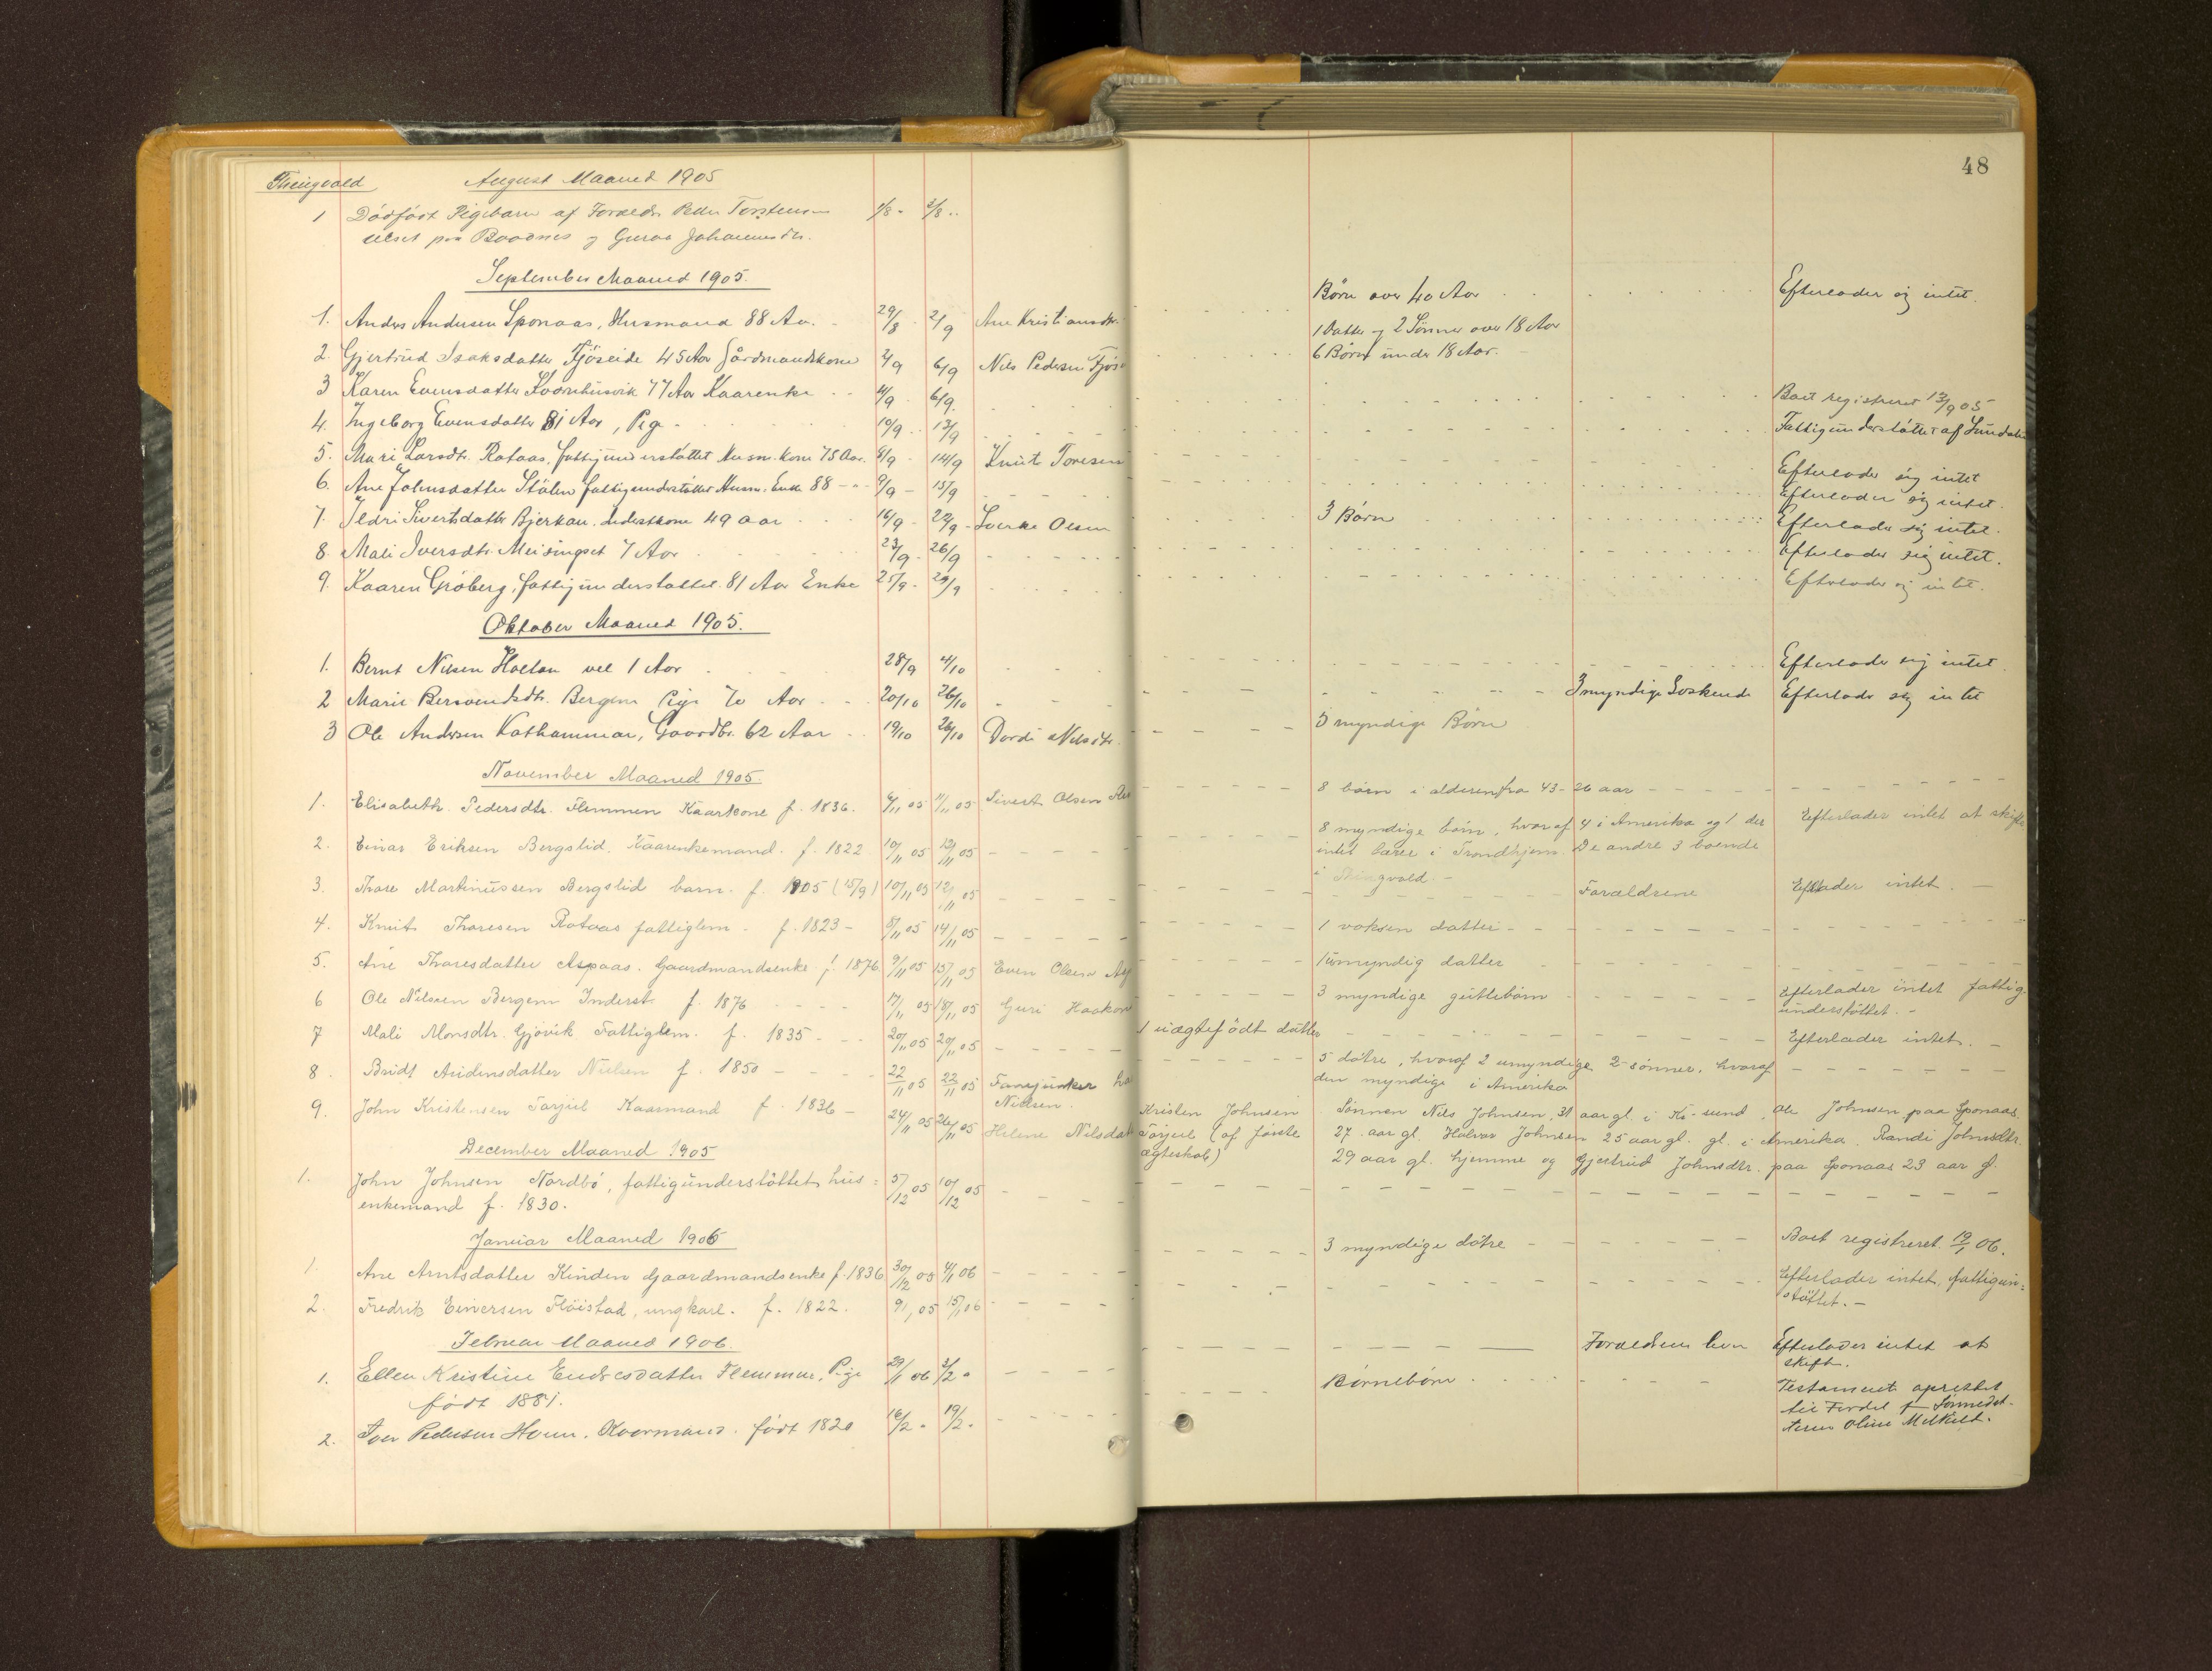 48
Thingvold August Maaned 1905
1 Dödfödt Pigebarn af Foreldr Peder Torstensen 1/8 - 3/8 ..
paa Baadnes og Guroa Johannesdtr.
September Maaned 1905.
1. Anders Andersen Sponaas, Husmand 88 Aar. 29/8 2/9 Ane Kristiansdtr. Børn over 40 Aar Efterlader sig intet.
2. Gjertrud Isaksdatter Fjöseide 45 Aar Gårdmandskone 2/9 6/9 Nils Pedersen Fjös 1 Datter og 2 Sönner over 18 Aar
6 Børn under 18 Aar.
3 Karen Evensdatter Kvernhusvik 77 Aar Kaarenke 4/9 6/9. Boet registreret 13/9 05
4. Ingeborg Evensdatter 81 Aar, Pige 10/9 13/9 Fattigunderstöttet af Sundalen
5. Mari Larsdtr. Rotaas, fattigunderstöttet Husm. kone 75 Aar. 8/9 14/9 Knut Toresen Efterlader sig intet
6. Ane Johnsdatter Stölen fattigunderstöttet Husm. Enke 88 9/9 15/9 Efterlader sig intet.
7. Ildri Sivertsdatter Bjerkan. Inderstkone 49 aar 16/9 22/9 Sverke Olsen 3 Børn Efterlader sig intet.
8. Mali Iversdtr. Meisingset 7 Aar 23/9 26/9 Efterlader sig intet.
9. Kaaren Gröberg, fattigunderstöttet 81 Aar Enke 25/9 29/9 Efterlader sig intet.
Oktober Maaned 1905.
1. Bernt Nilsen Holten vel 1 Aar 28/9 4/10 Efterlader sig intet.
2 Marie Bersvendsdtr. Bergem Pige 70 Aar 20/10 26/10 3 myndige Søskende Efterlader sig intet
3 Ole Andersen Kathammer, Gaardbr. 62 Aar 19/10 26/10 Dordi Nilsdtr. 5 myndige Børn
November Maaned 1905.
1. Elisabeth Pedersdtr. Flemmen Kaarkone f. 1836. 6/11 05 11/11 05 Sivert Olsen 8 børn i alderen fra 43-26 aar
2. Einar Eriksen Bergslid. Kaarenkemand. f. 1822 10/11 05 12/11 05 8 myndige børn, hvoraf 4 i Amerika og 1 der Efterlader intet at skifte
intet i Trondhjem. De andre 3 boende
i Thingvold. -
3. Thore Martinussen Bergslid barn. f. 1905 (15/9) 10/11 05 12/11 05 Forældrene Efterlader intet.
4. Knut Thoresen Rotaas fattiglem - f. 1823 - 8/11 05 14/11 05 1 voksen datter
5. Ane Thoresdatter Aspaas. Gaardmandsenke f. 1876. 9/11 05 15/11 05 Even Olsen Asp 1 umyndig datter
6 Ole Nilssen Bergem Inderst. f. 1876 17/11 05 18/11 05 Guri Haakon 3 myndige guttebørn Efterlader intet fattig-
understöttet. -
7 Mali Monsdtr. Gjövik Fattiglem. f. 1835 20/11 05 20/11 05 1 uægtefödt datter Efterlader intet. -
8. Bridt Audensdatter Nielsen f. 1850 22/11 05 22/11 05 Fanejunker
Nielsen. 5 døtre, hvoraf 2 umyndige 2 sönner, hvoraf
den myndige i Amerika
9. John Kristensen Torjul Kaarmand f. 1836 - 24/11 05 26/11 05 Helene Nilsdat Kristen Johnsen Sönnen Nils Johnsen, 31 aar gl. i Kr-sund, Ole Johnsen paa Sponaas
Torjul (af förste 27 aar gl. Halvor Johnsen 25 aar gl. gl. i Amerika. Randi Johnsdtr.
ægteskab) 29 aar gl. hjemme og Gjertrud Johnsdtr. paa Sponaas 23 aar gl.
December Maaned 1905
1. John Johnsen Nordbö, fattigunderstöttet hus= 5/12 05 10/12 05
enkemand f. 1830.
Januar Maaned 1906
1. Ane Arntsdatter Kinden Gaardmandsenke f. 1836 30/12 05 4/1 06 3 myndige dötre Boet registreret 19/1 06.
2. Fredrik Einersen Flöistad, ungkarl. f. 1822. 9/1, 05 15/1 06 Efterlader intet, fattigun=
stöttet. -
Februar Maaned 1906.
1. Ellen Kristine Endresdatter Flemmen, Pige 29/1 06 3/2 Forældrene lever Efterlader intet at
födt 1881. skift.
2. Iver Pedersen Hoem. Kaarmand. födt 1820 16/2 19/2. Börnebörn Testament oprettet
til Fordel f Sönnedat-
teren Oline Mekkild.